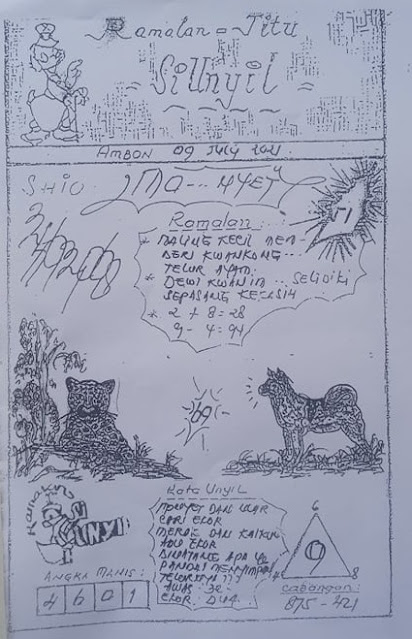 Ramalan - Jitu
SiUnyil
AMBON 09 JULY 2021
SHIO
Ramalan :
* MALING KECIL MEN-
DERI KWANKONG
TELUR AYAM
* DEWI KWANIM ... SELIDIKI
SEPASANG KEKASIH
* 2 + 8 = 28
9 - 4 = 94
69
Kata UnyiL
MONYET DAN ULAR
CARI EKOR
MERAK DAN
ADU EKOR
BINATANG APA YG
PANDAI MENYIMPAN
TELURNYA ??
AWAS : 32
EKOR : DUA
UNYIL
ANGKA MANIS :
4 6 0 1
6
9
8
Cabangan :
875 - 421